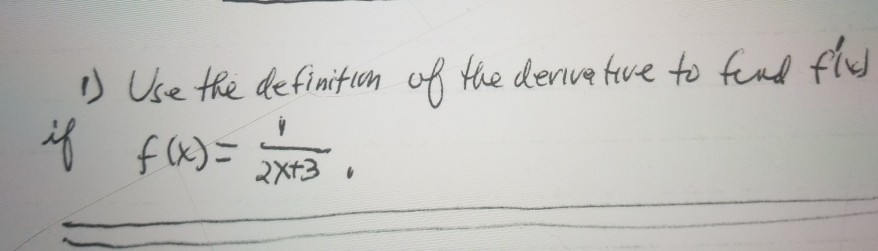 1) Use the definition of the derivative to find f'(x)
if f(x) = 1/(2x+3).